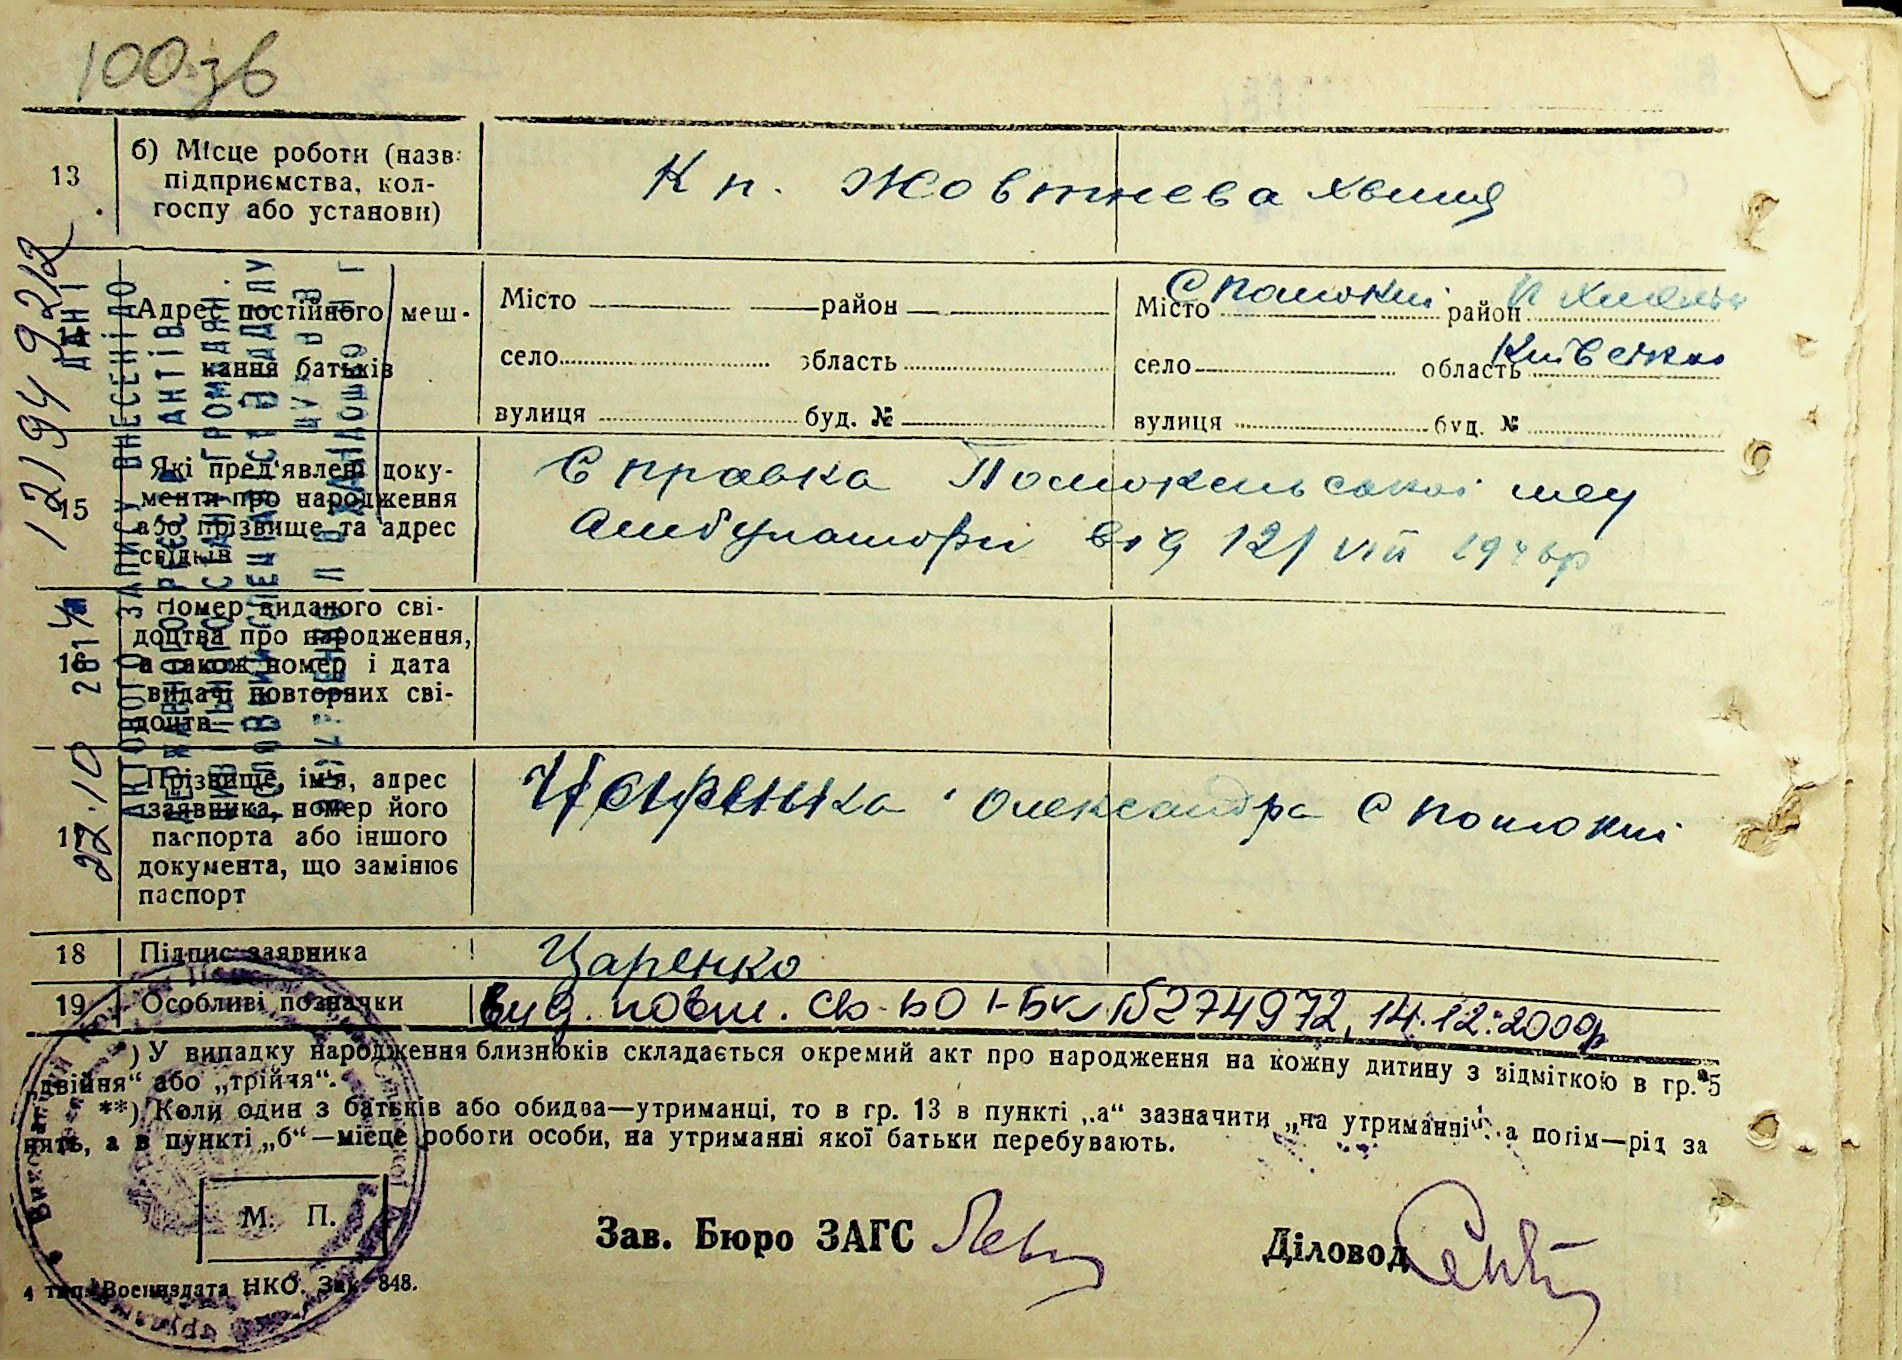 100зв
13
б) Місце роботи (назв.
підприємства, кол-
госпу або установи)
К п. Жовтнева хвиля
Адрес постійного меш-
кання батьків
Місто район
село область
вулиця буд. №
Місто с Потоки район
село область Київська
вулиця буд. №
15
Які пред'явлені доку-
менти про народження
або прізвище та адрес
свідків
Справка Потокської мед
Амбулаторії від 12/VIII
16
Номер виданого сві-
доцтва про народження,
а також номер і дата
видачі повторних сві-
доцтв
17
Прізвище, ім'я, адрес
заявника, номер його
паспорта або іншого
документа, що замінює
паспорт
Царенка Олександра с Потоки
18 Підпис заявника Царенко
19 Особливі позначки вид. повт. св-во І-БК №274972, 14.12.2000р
*) У випадку народження близнюків складається окремий акт про народження на кожну дитину з відміткою в гр. 5
„двійня“ або „трійня“.
**) Коли один з батьків або обидва—утриманці, то в гр. 13 в пункті „а“ зазначити „на утриманні“, а потім—рід за
нять, а в пункті „б“—місце роботи особи, на утриманні якої батьки перебувають.
М. П.
Зав. Бюро ЗАГС
Діловод
4 тип. Воениздата НКО. Зак. 848.
12194 9212
ДАНІ
АКТОВОГО ЗАПИСУ ВНЕСЕНІ ДО
22.10 2014